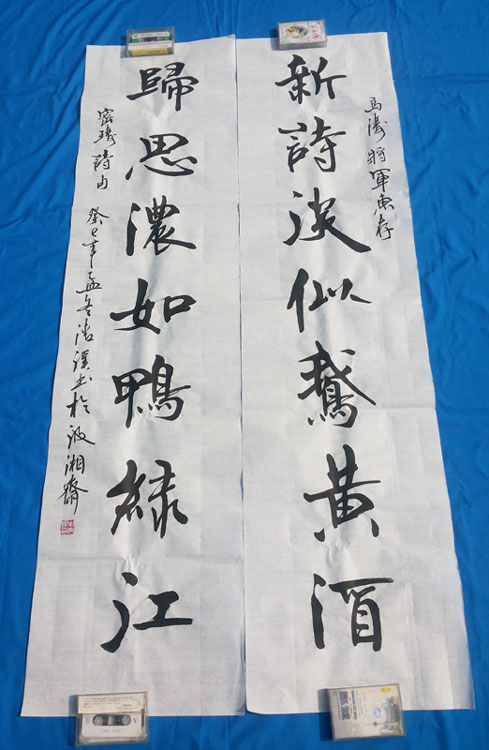 馬濤將軍惠存
新詩淡似鵝黃酒
歸思濃如鴨綠江
密璹詩句 癸巳年孟冬 溪書於 湘齋